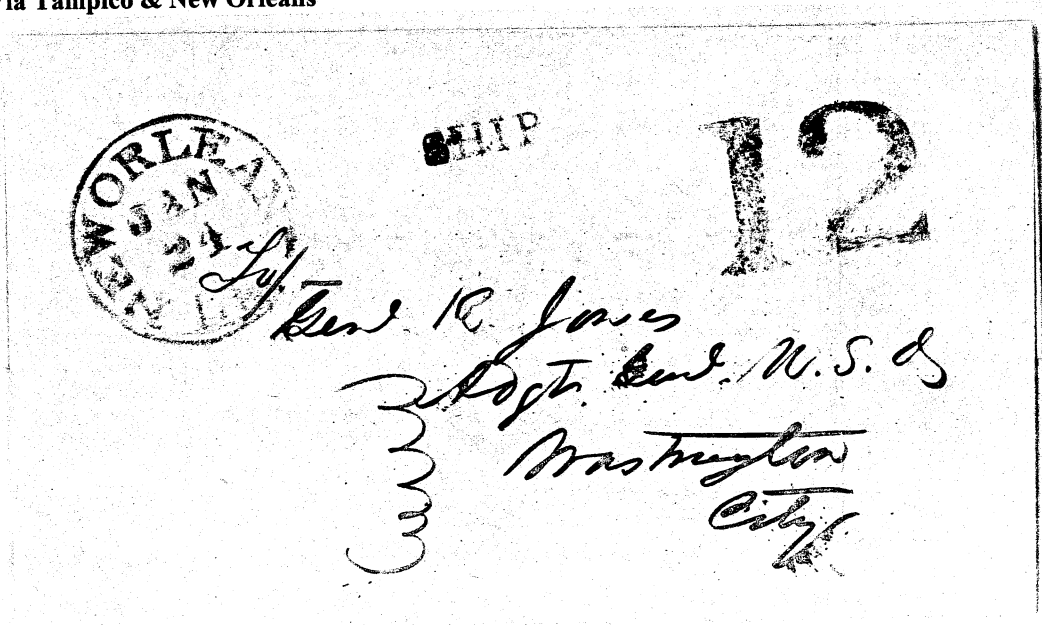 via Tampico & New Orleans
SHIP
12
NEW ORLEAN
JAN
24
Genl. R. Jones
Adgt. Genl. U.S. A
Washington
City